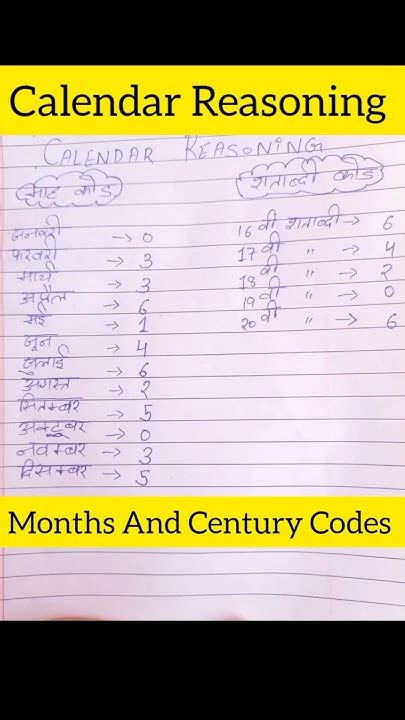 Calendar Reasoning
CALENDAR REASONING
माह कोड
शताब्दी कोड
जनवरी → 0
फरवरी → 3
मार्च → 3
अप्रैल → 6
मई → 1
जून → 4
जुलाई → 6
अगस्त → 2
सितम्बर → 5
अक्टूबर → 0
नवम्बर → 3
दिसम्बर → 5
16 वी शताब्दी → 6
17 वी " → 4
18 वी " → 2
19 वी " → 0
20 वी " → 6
Months And Century Codes